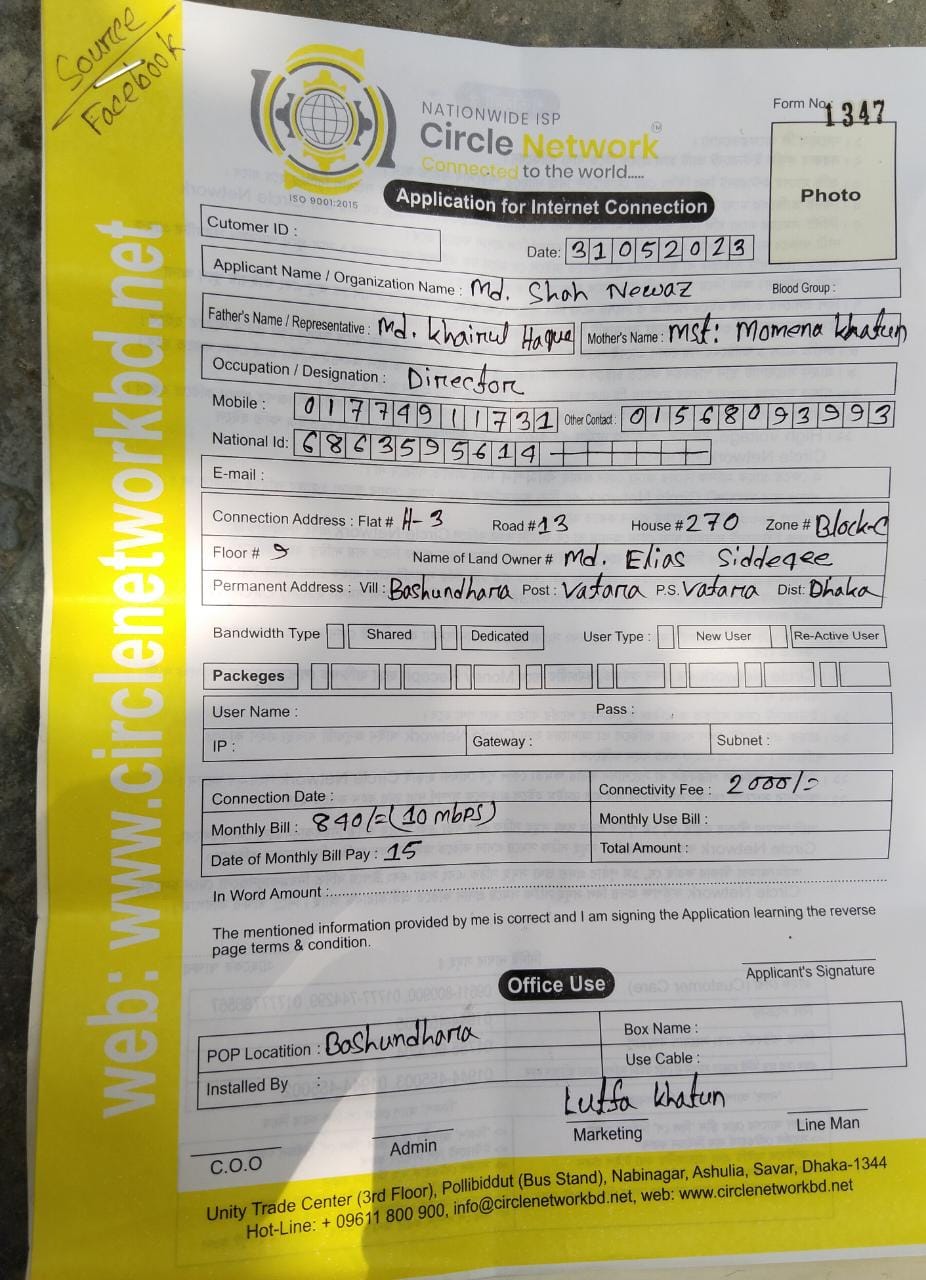 Source
Facebook
NATIONWIDE ISP
Circle Network™
Connected to the world.....
ISO 9001:2015
Form No. 1347
Photo
Application for Internet Connection
Cutomer ID :
Date: 31052023
Applicant Name / Organization Name : Md. Shah Newaz Blood Group :
Father's Name / Representative : Md. Khairul Haque Mother's Name : Mst: Momena Khatun
Occupation / Designation : Director
Mobile : 01774911731 Other Contact : 01568093993
National Id: 6863595614
E-mail :
Connection Address : Flat # H-3 Road # 13 House # 270 Zone # Block-C
Floor # 9 Name of Land Owner # Md. Elias Siddeqee
Permanent Address : Vill : Bashundhara Post : Vatara P.S. Vatara Dist: Dhaka
Bandwidth Type Shared Dedicated User Type : New User Re-Active User
Packeges
User Name : Pass :
IP : Gateway : Subnet :
Connection Date : Connectivity Fee : 2000/=
Monthly Bill : 840/= (10 mbps) Monthly Use Bill :
Date of Monthly Bill Pay : 15 Total Amount :
In Word Amount :
The mentioned information provided by me is correct and I am signing the Application learning the reverse
page terms & condition.
Applicant's Signature
Office Use
POP Locatition : Bashundhara Box Name :
Installed By : Use Cable :
Lutfa Khatun
C.O.O Admin Marketing Line Man
Unity Trade Center (3rd Floor), Pollibiddut (Bus Stand), Nabinagar, Ashulia, Savar, Dhaka-1344
Hot-Line: + 09611 800 900, info@circlenetworkbd.net, web: www.circlenetworkbd.net
web: www.circlenetworkbd.net